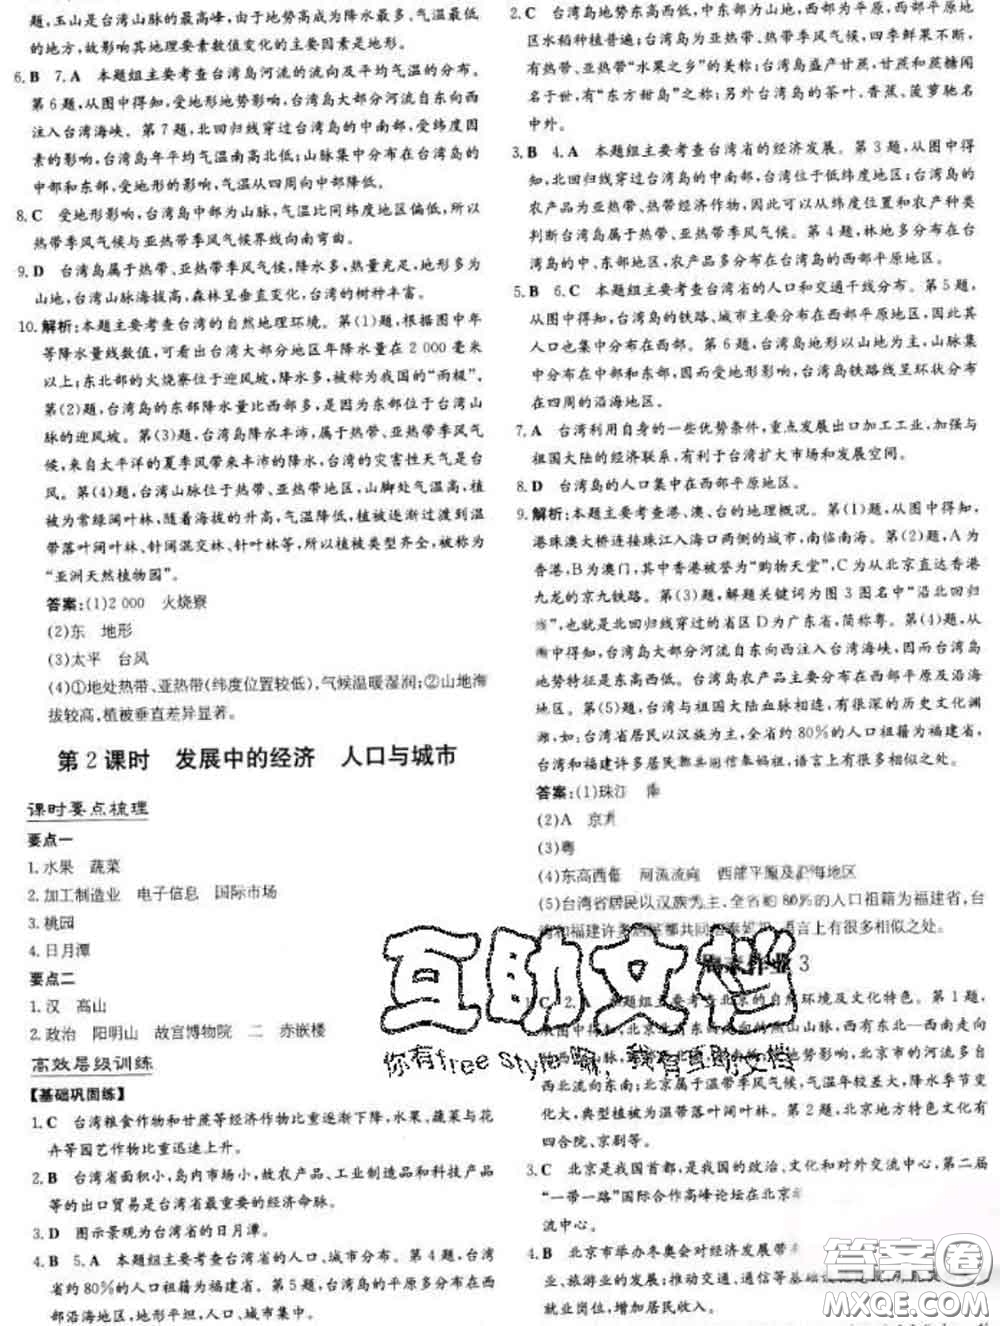 题,玉山是台湾山脉的最高峰,由于地势高降水最多、气温最低
的地方,故影响其地理要素数值变化的主要因素是地形。
6. B 7. A 本题组主要考查台湾岛河流的流向及平均气温的分布。
第6题,从图中得知,受地形地势影响,台湾岛大部分河流自东向西
注入台湾海峡。第7题,北回归线穿过台湾岛的中南部,受纬度因
素的影响,台湾岛年平均气温南高北低;山脉集中分布在台湾岛的
中部和东部,受地形的影响,气温从四周向中部降低。
8. C 受地形影响,台湾岛中部为山脉,气温比同纬度地区偏低,所以
热带季风气候与亚热带季风气候界线向南弯曲。
9. D 台湾岛属于热带、亚热带季风气候,降水多,热量充足,地形多为
山地,台湾山脉海拔高,森林呈垂直变化,台湾的树种丰富。
10. 解析:本题主要考查台湾的自然地理环境。第(1)题,根据图中年
等降水量线数值,可看出台湾大部分地区年降水量在2 000毫米
以上;东北部的火烧寮位于迎风坡,降水多,被称为我国的“雨极”。
第(2)题,台湾岛的东部降水量比西部多,是因为东部是台湾山
脉的迎风坡。第(3)题,台湾岛降水丰沛,属于热带、亚热带季风气
候,来自太平洋的夏季风带来丰沛的降水,台湾的灾害性天气是台
风。第(4)题,台湾山脉位于热带、亚热带地区,山脚处气温高,植
被为常绿阔叶林,随着海拔的升高,气温变低,植被逐渐过渡到温
带落叶阔叶林、针阔混交林、针叶林等,所以植被类型齐全,被称为
“亚洲天然植物园”。
答案:(1)2 000 火烧寮
(2)东 地形
(3)太平 台风
(4)①地处热带、亚热带(纬度位置较低),气候温暖湿润;②山地海
拔较高,植被垂直差异显著。
第2课时 发展中的经济 人口与城市
课时要点梳理
要点一
1. 水果 蔬菜
2. 加工制造业 电子信息 国际市场
3. 桃园
4. 日月潭
要点二
1. 汉 高山
2. 政治 阳明山 故宫博物院 二 赤嵌楼
高效层级训练
【基础巩固练】
1. C 台湾粮食作物和甘蔗等经济作物比重逐渐下降,水果、蔬菜与花
卉等园艺作物比重迅速上升。
2. B 台湾省面积小,岛内市场小,故农产品、工业制造品和科技产品
等的出口贸易是台湾省最重要的经济命脉。
3. D 图示景观为台湾省的日月潭。
4. B 5. A 本题组主要考查台湾省的人口、城市分布。第4题,台湾
省约80%的人口祖籍为福建省。第5题,台湾岛的平原多分布在西
部沿海地区,地形平坦,人口、城市集中。
2. C 台湾岛地势东高西低,中东部为山地,西部为平原,西部平原地
区水稻种植普遍;台湾岛为亚热带、热带季风气候,四季鲜果不断,
有热带、亚热带“水果之乡”的美称;台湾岛盛产甘蔗,甘蔗和蔗糖闻
名于世,有“东方甜岛”之称;另外台湾岛的茶叶、香蕉、菠萝驰名
中外。
3. B 4. A 本题组主要考查台湾省的经济发展。第3题,从图中得
到,北回归线穿过台湾岛的中南部,从纬度看属于热带,台湾岛的
农产品为亚热带、热带经济作物,因此可以从纬度位置和农产种类
判断台湾岛的热带、亚热带季风气候。第4题,林地多分布在
台湾岛的中、东部地区,农产品多分布在台湾岛的西部平原地区。
5. B 6. C 本题组主要考查台湾省的人口和交通干线分布。第5题,
台湾岛的铁路、城市主要分布在台湾岛的西部平原地区,因此其
人口也集中分布在西部。第6题,台湾岛地形以山地为主,山脉集
中分布在中东部,因而受地形影响,台湾岛铁路线呈环状分布
在四周的沿海地区。
7. A 台湾利用自身的一些优势条件,重点发展出口加工工业,加强与
祖国大陆的经济联系,有利于台湾扩大市场和发展空间。
8. D 台湾岛的人口集中在西部平原地区。
9. 解析:本题主要考查港、澳、台的地理概况。第(1)题,从图中得知,
港珠澳大桥连接珠江入海口两侧的城市,南临南海。第(2)题,A为
香港,B为澳门,其中香港被誉为“购物天堂”,C为从北京直达香港
九龙的京九铁路。第(3)题,解题关键词为图3图名中“沿北回归
线”,也就是北回归线穿过的省区D为广东省,简称粤。第(4)题,从图
中得知,台湾岛大部分河流自东向西注入台湾海峡,因此台湾岛的
地势特征是东高西低。台湾岛农产品多分布在西部平原及沿海
地区。第(5)题,台湾与祖国大陆血脉相连,有很深的历史文化渊
源,如:台湾省居民以汉族为主,全省约80%的人口祖籍为福建省,
台湾和福建许多居民都共同信奉妈祖,语言上有很多相似之处。
答案:(1)珠江 南
(2)A 京九
(3)粤
(4)东高西低 河流流向 西部平原及沿海地区
(5)台湾省居民以汉族为主,全省约80%的人口祖籍为福建省,台
湾和福建许多居民都共同信奉妈祖,语言上有很多相似之处。
作业3
1. C 2. A 本题组主要考查北京的自然环境及文化特色。第1题,
西北向东南流;北京属于温带季风气候,气温年较差大,降水季节变
化大,典型植被为温带落叶阔叶林。第2题,北京地方特色文化有
四合院、京剧等。
3. C 北京是我国首都,是我国的政治、文化和对外交流中心,第二届
“一带一路”国际合作高峰论坛在北京
流中心。
4. B 北京市举办冬奥会对经济发展带
业、旅游业的发展;推动交通、通信等基础设
就业岗位,增加居民收入。
互助文档
你有free style嘛,我有互助文档
答案圈
MXQE.COM